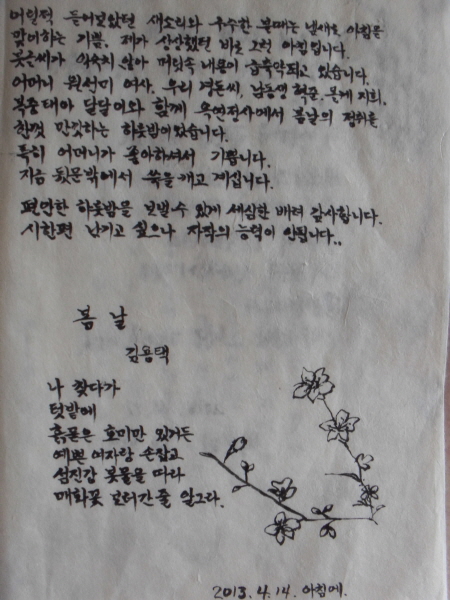 어릴적 들어보았던 새소리와 구수한 불때는 냄새로 아침을
맞이하는 기쁨. 제가 상상했던 바로 그런 아침입니다.
붓글씨가 익숙치 않아 머릿속 내용이 급축약되고 있습니다.
어머니 원선미 여사. 우리 경돈씨, 남동생 혁준, 올케 지희,
복중태아 달달이와 함께 옥연정사에서 봄날의 정취를
한껏 만끽하는 하룻밤이었습니다.
특히 어머니가 좋아하셔서 기쁩니다.
지금 뒷문밖에서 쑥을 캐고 계십니다.
편안한 하룻밤을 보낼 수 있게 세심한 배려 감사합니다.
시한편 남기고 싶으나 자작의 능력이 안됩니다..
봄 날
김용택
나 찾다가
텃밭에
흙묻은 호미만 있거든
예쁜 여자랑 손잡고
섬진강 봄물을 따라
매화꽃 보러간 줄 알그라.
2013. 4. 14. 아침에.